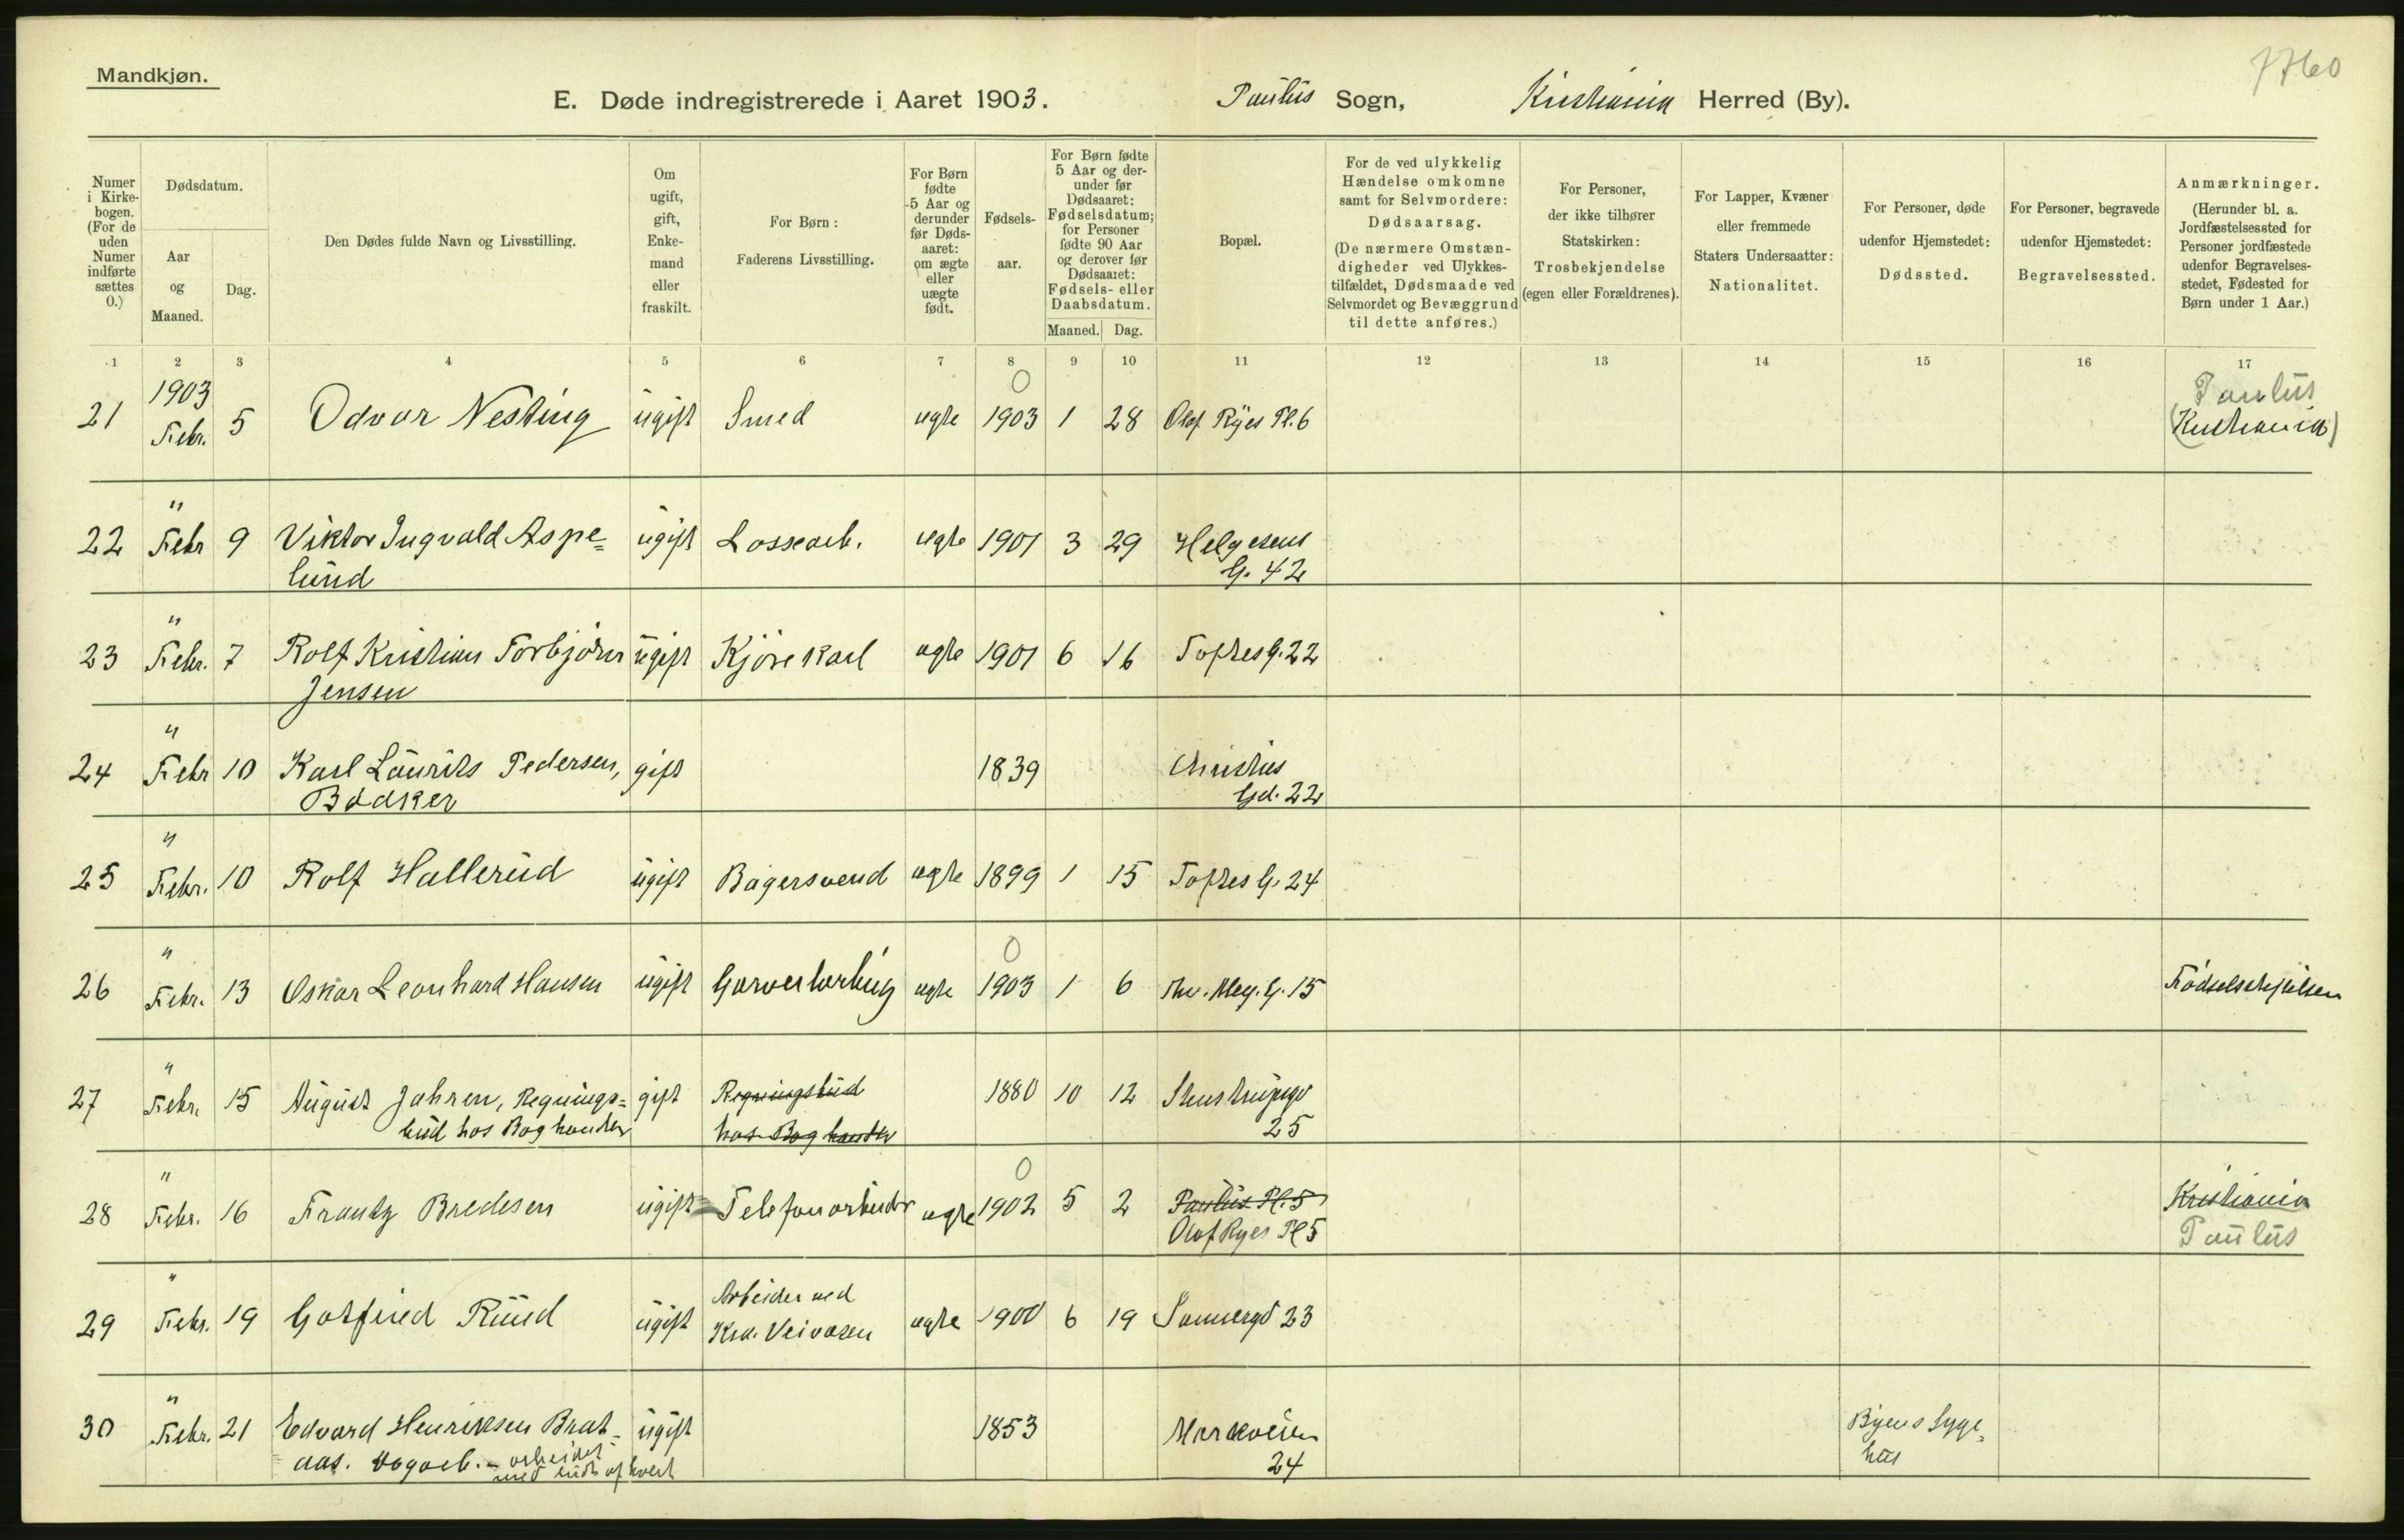 Mandkjøn.
7760
E. Døde indregistrerede i Aaret 1903.
Paulus Sogn,
Kristiania Herred (By).
Numer i Kirkebogen. (For de uden Numer indførte sættes 0.)
Dødsdatum.
Aar og Maaned.
Dag.
Den Dødes fulde Navn og Livsstilling.
Om ugift, gift, Enkemand eller fraskilt.
For Børn: Faderens Livsstilling.
For Børn fødte 5 Aar og derunder før Dødsaaret: om ægte eller uægte født.
Fødselsaar.
For Børn fødte 5 Aar og derunder før Dødsaaret: Fødselsdatum; for Personer fødte 90 Aar og derover før Dødsaaret: Fødsels- eller Daabsdatum.
Maaned. Dag.
Bopæl.
For de ved ulykkelig Hændelse omkomne samt for Selvmordere: Dødsaarsag. (De nærmere Omstændigheder ved Ulykkestilfældet, Dødsmaade ved Selvmordet og Bevæggrund til dette anføres.)
For Personer, der ikke tilhører Statskirken: Trosbekjendelse (egen eller Forældrenes).
For Lapper, Kvæner eller fremmede Staters Undersaatter: Nationalitet.
For Personer, døde udenfor Hjemstedet: Dødssted.
For Personer, begravede udenfor Hjemstedet: Begravelsessted.
Anmærkninger. (Herunder bl. a. Jordfæstelsessted for Personer jordfæstede udenfor Begravelsesstedet, Fødested for Børn under 1 Aar.)
1 2 3 4 5 6 7 8 9 10 11 12 13 14 15 16 17
1903 0 Paulus
21 Febr. 5 Odvar Nesting ugift Smed ægte 1903 1 28 Olaf Ryes Pl. 6 (Kristiania)
"
22 Febr 9 Viktor Ingvald Aspe= ugift Lossearb. ægte 1901 3 29 Helgesens
lund G. 42
"
23 Febr. 7 Rolf Kristian Torbjörn ugift Kjörekarl ægte 1901 6 16 Toftes G. 22
Jensen
"
24 Febr 10 Karl Laurits Pedersen, gift 1839 Christies
Bødker Gd. 22
"
25 Febr. 10 Rolf Hallerud ugift Bagersvend ægte 1899 1 15 Toftes G. 24
" 0
26 Febr. 13 Oskar Leonhard Hansen ugift Garverlærling ægte 1903 1 6 Thv. Mey. G. 15 Fødselsstiftelsen
"
27 Febr. 15 August Jahren, Regnings= gift Regningsbud 1880 10 12 Stenstrupgd
bud hos Boghandler hos Boghandler 25
" 0
28 Febr. 16 Frantz Bredesen ugift Telefonarbeider ægte 1902 5 2 Paulus Pl. 5 Kristiania
Olaf Ryes Pl 5 Paulus
" Arbeider ved
29 Febr. 19 Gotfried Ruud ugift Kra. Veivæsen ægte 1900 6 19 Sannergd 23
"
30 Febr. 21 Edvard Henriksen Brat- ugift 1853 Markveien Byens Syge=
aas. - arbeidet 24 hus
med lidt af hvert